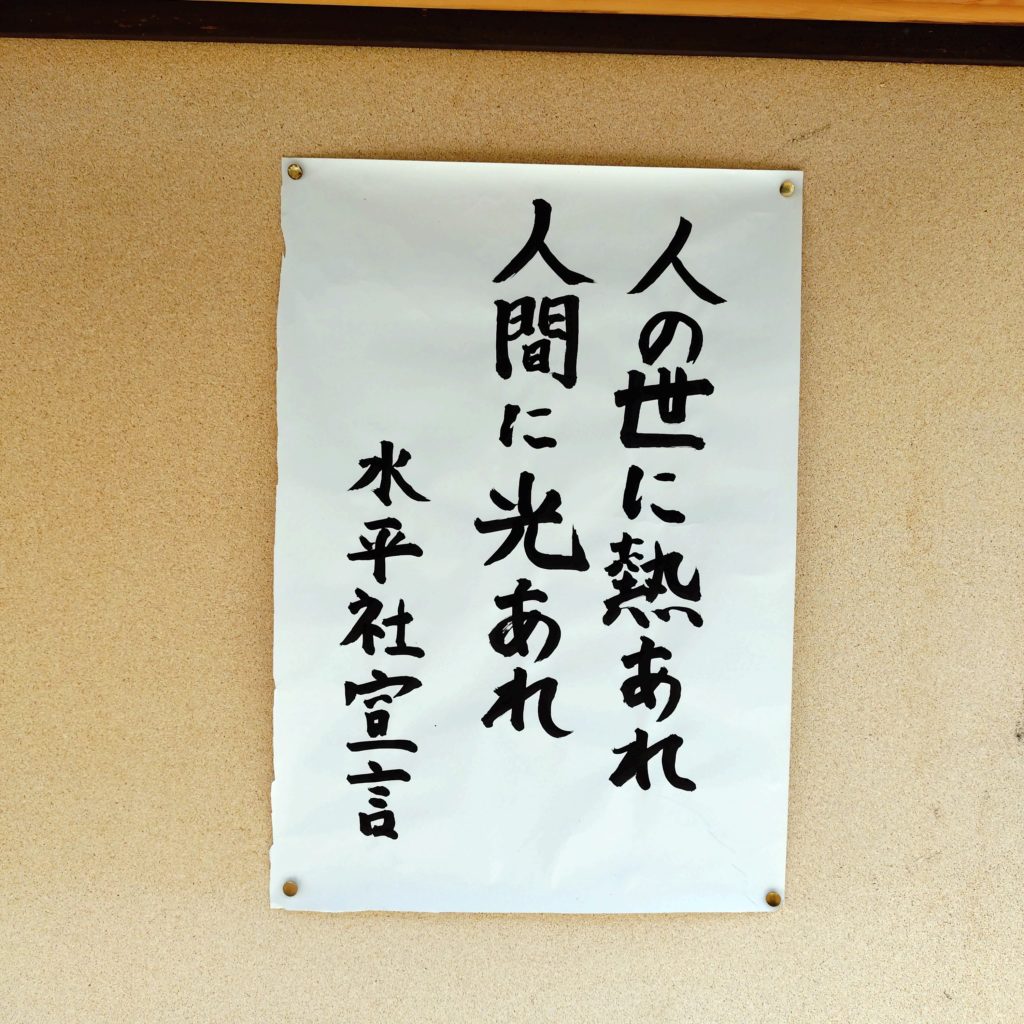 人の世に熱あれ
人間に光あれ
水平社宣言